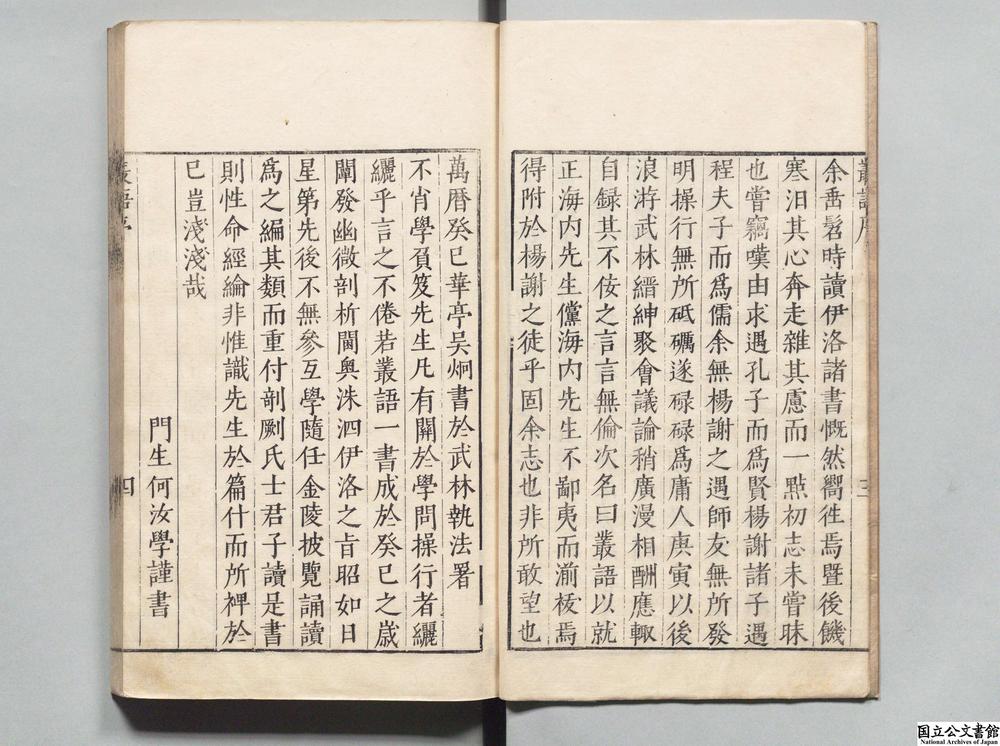 叢語序
三
余垂髫時讀伊洛諸書慨然嚮徃焉暨後饑
寒汨其心奔走雜其慮而一㸃初志未嘗昧
也嘗竊嘆由求遇孔子而爲賢楊謝諸子遇
程夫子而爲儒余無楊謝之遇師友無所發
明操行無所砥礪遂碌碌爲庸人庚寅以後
浪游武林縉紳聚會議論稍廣漫相酬應輙
自録其不佞之言言無倫次名曰叢語以就
正海内先生儻海内先生不鄙夷而湔祓焉
得附於楊謝之徒乎固余志也非所敢望也
萬曆癸巳華亭吴炯書於武林執法署
不肖學負笈先生凡有關於學問操行者纚
纚乎言之不倦若叢語一書成於癸巳之歳
闡發幽微剖析閫奥洙泗伊洛之旨昭如日
星第先後不無參互學隨任金陵披覽誦讀
爲之編其類而重付剞劂氏士君子讀是書
則性命經綸非惟識先生於篇什而所裨於
已豈淺淺哉
門生何汝學謹書
叢語序
四
国立公文書館
National Archives of Japan